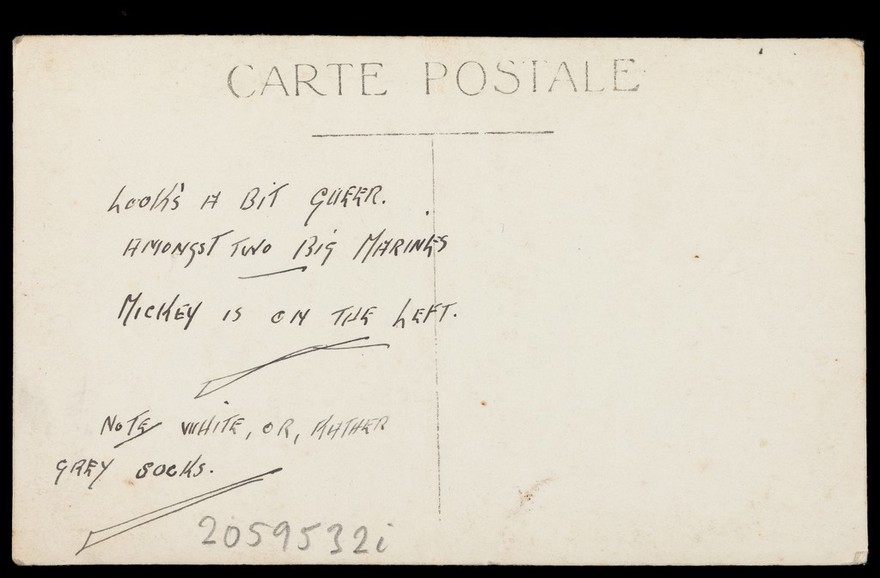 CARTE POSTALE
LOOK'S A BIT QUEER.
AMONGST TWO BIG MARINES
MICKEY IS ON THE LEFT.
NOTE WHITE, OR, RATHER
GREY SOCKS.
2059532i